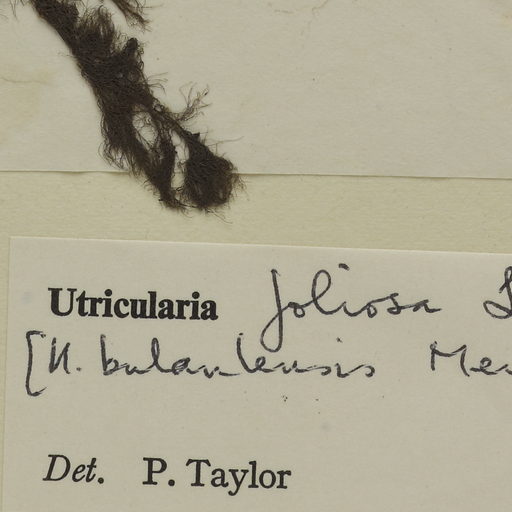 Utricularia foliosa L
[U. bulaulensis Mer
Det. P. Taylor